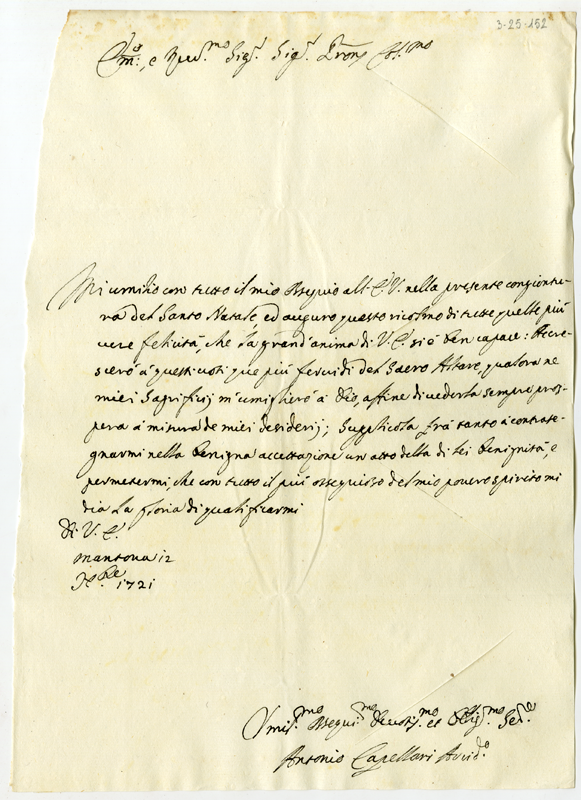 3-25-152
Em:mo, e Rev.mo Sig.r Sig.r Pron Col.mo
Mi umilio con tutto il mio ossequio all' E.V. nella presente congiontu-
ra del Santo Natale, ed auguro questo ricolmo di tutte quelle più
vere felicità, che la grand'anima di V. E. si è ben capace: Accre-
scierò à questi voti que più fervidi del Sacro Altare, qualora ne
miei Sagrificij m'umiglierò à Dio, affine di vederla sempre pros-
pera à misura de miei desiderij; Supplicola frà tanto à contrase-
gnarmi nella benigna accettazione un atto della di lei benignità, e
permetermi, che con tutto il più ossequioso del mio povero spirito mi
dia la gloria di qualificarmi
Di V. E.
Mantova 12
Xbre 1721
Umil.mo Ossequi.mo Devotis.mo et Obblig.mo Ser.e
Antonio Capellari